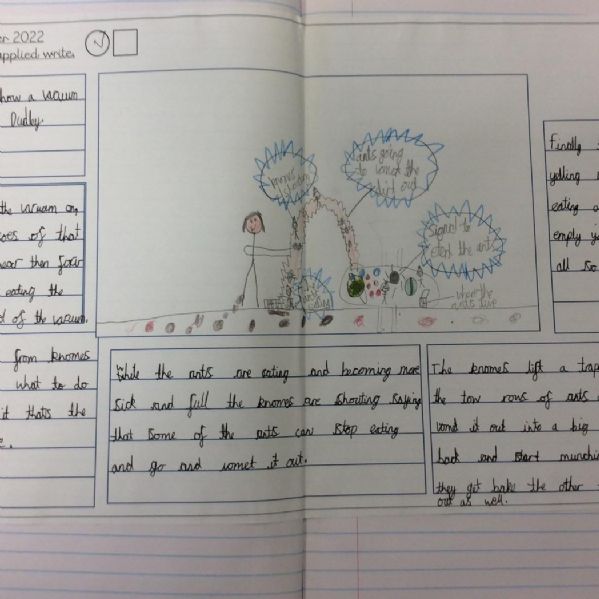 er 2022
applied write.
how a vacum
Dudley.
the vacum on,
oes of that
near then four
eating the
d of the vacum.
from knomes
what to do
it thats the
ants going
to vomet the
dirt out
signal to
start the ants
where the
ants live
While the ants are eating and becoming more
sick and full the knomes are shouting saying
that some of the ants can stop eating
and go and vomet it out.
Finally
yelling
eating
empty
all so
The knomes lift a trap
the tow rows of ants
vomd it out into a big
back and start munchin
they get bake the other
out as well.